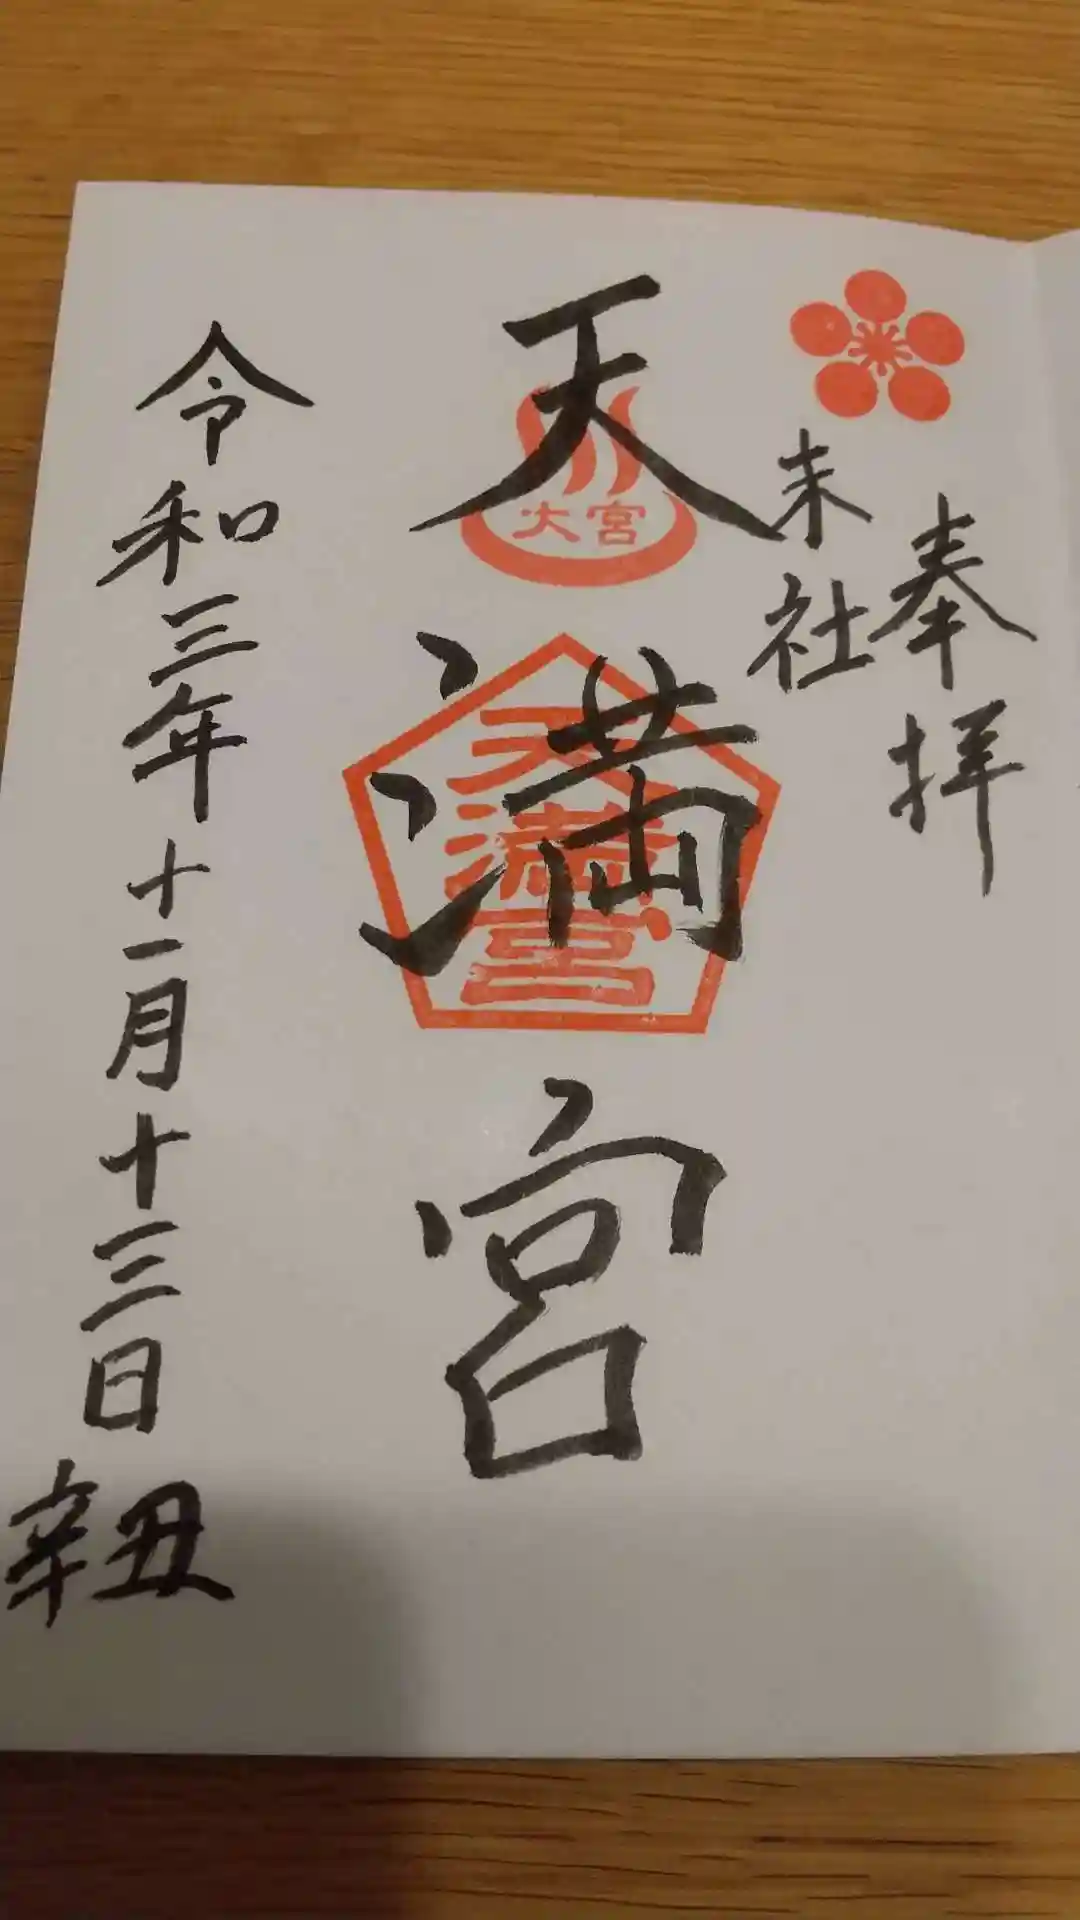 奉拝
末社
天満宮
大宮
天満宮
令和三年十一月十三日
辛丑